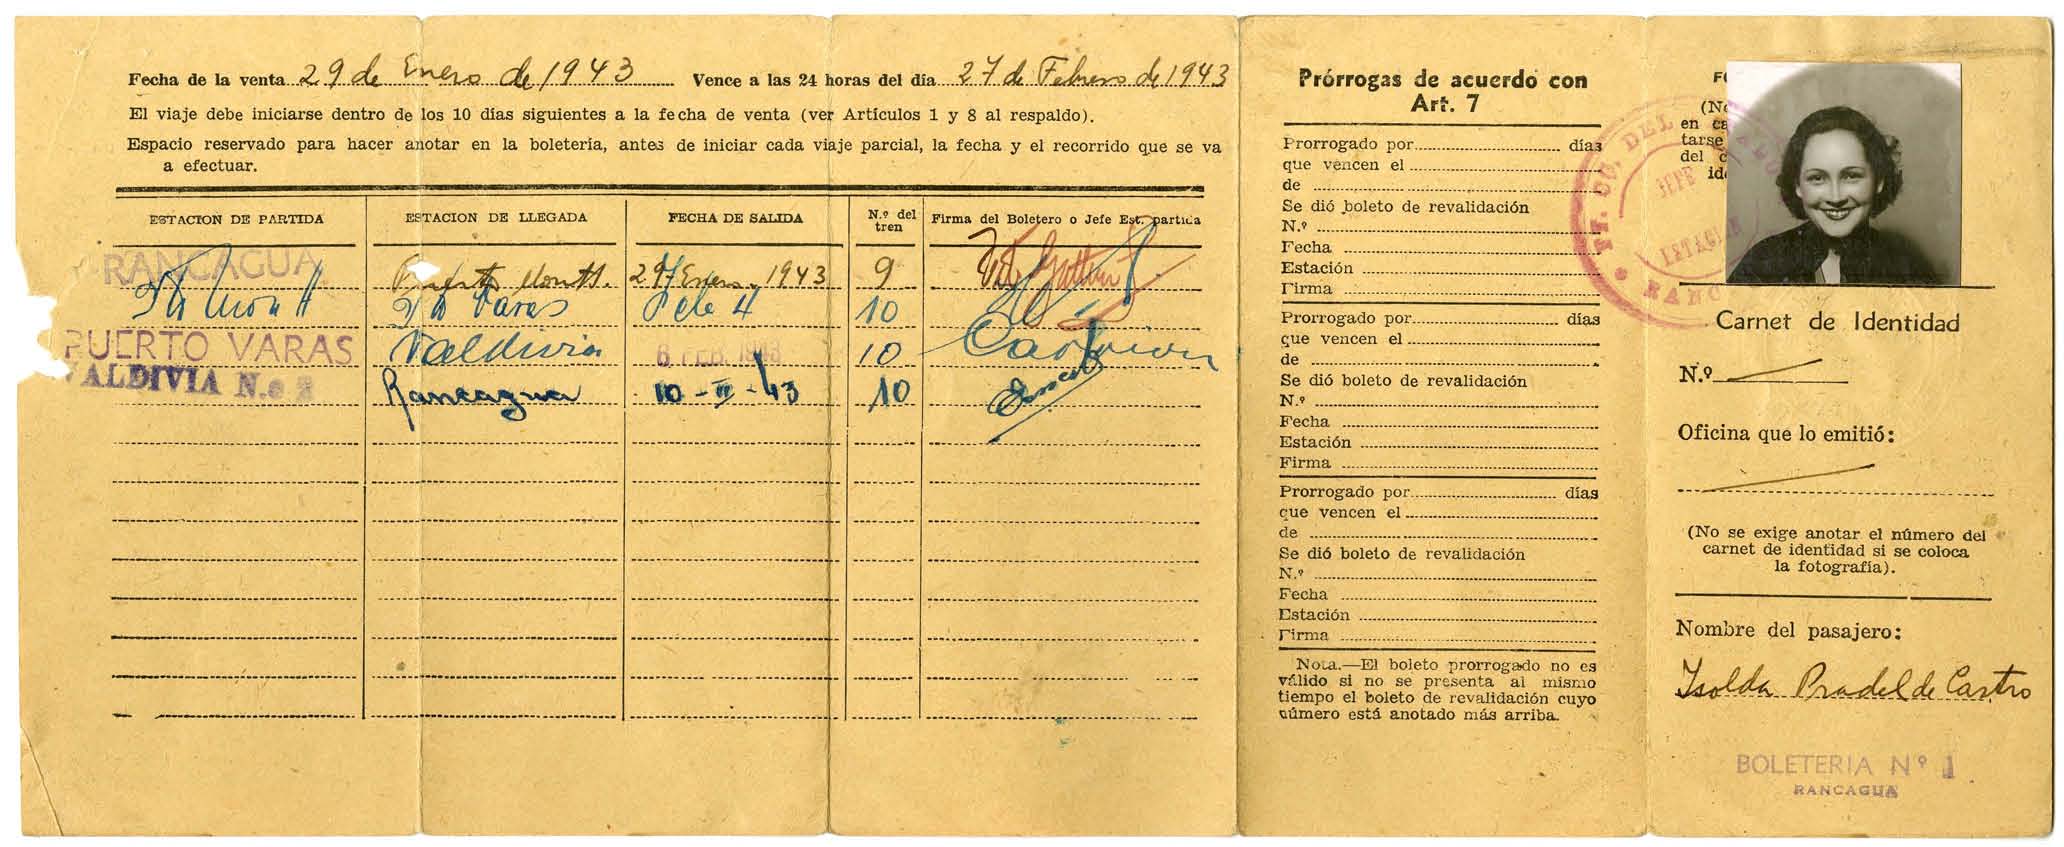 Fecha de la venta 29 de Enero de 1943 Vence a las 24 horas del día 27 de Febrero de 1943
El viaje debe iniciarse dentro de los 10 días siguientes a la fecha de venta (ver Artículos 1 y 8 al respaldo).
Espacio reservado para hacer anotar en la boletería, antes de iniciar cada viaje parcial, la fecha y el recorrido que se va
a efectuar.
ESTACION DE PARTIDA ESTACION DE LLEGADA FECHA DE SALIDA N.º del tren Firma del Boletero o Jefe Est. partida
RANCAGUA Puerto Montt. 29 Enero 1943 9
Pto Montt Pto Varas Feb 4 10
PUERTO VARAS Valdivia 6 FEB. 1943 10
VALDIVIA N.o 2 Rancagua 10-II-43 10
Prórrogas de acuerdo con
Art. 7
Prorrogado por días
que vencen el
de
Se dió boleto de revalidación
N.º
Fecha
Estación
Firma
Prorrogado por días
que vencen el
de
Se dió boleto de revalidación
N.º
Fecha
Estación
Firma
Prorrogado por días
que vencen el
de
Se dió boleto de revalidación
N.º
Fecha
Estación
Firma
Nota.—El boleto prorrogado no es
válido si no se presenta al mismo
tiempo el boleto de revalidación cuyo
número está anotado más arriba.
FF. CC. DEL ESTADO
JEFE
ESTACION
Carnet de Identidad
N.º
Oficina que lo emitió:
(No se exige anotar el número del
carnet de identidad si se coloca
la fotografía).
Nombre del pasajero:
Isolda Pradel de Castro
BOLETERIA Nº 1
RANCAGUA